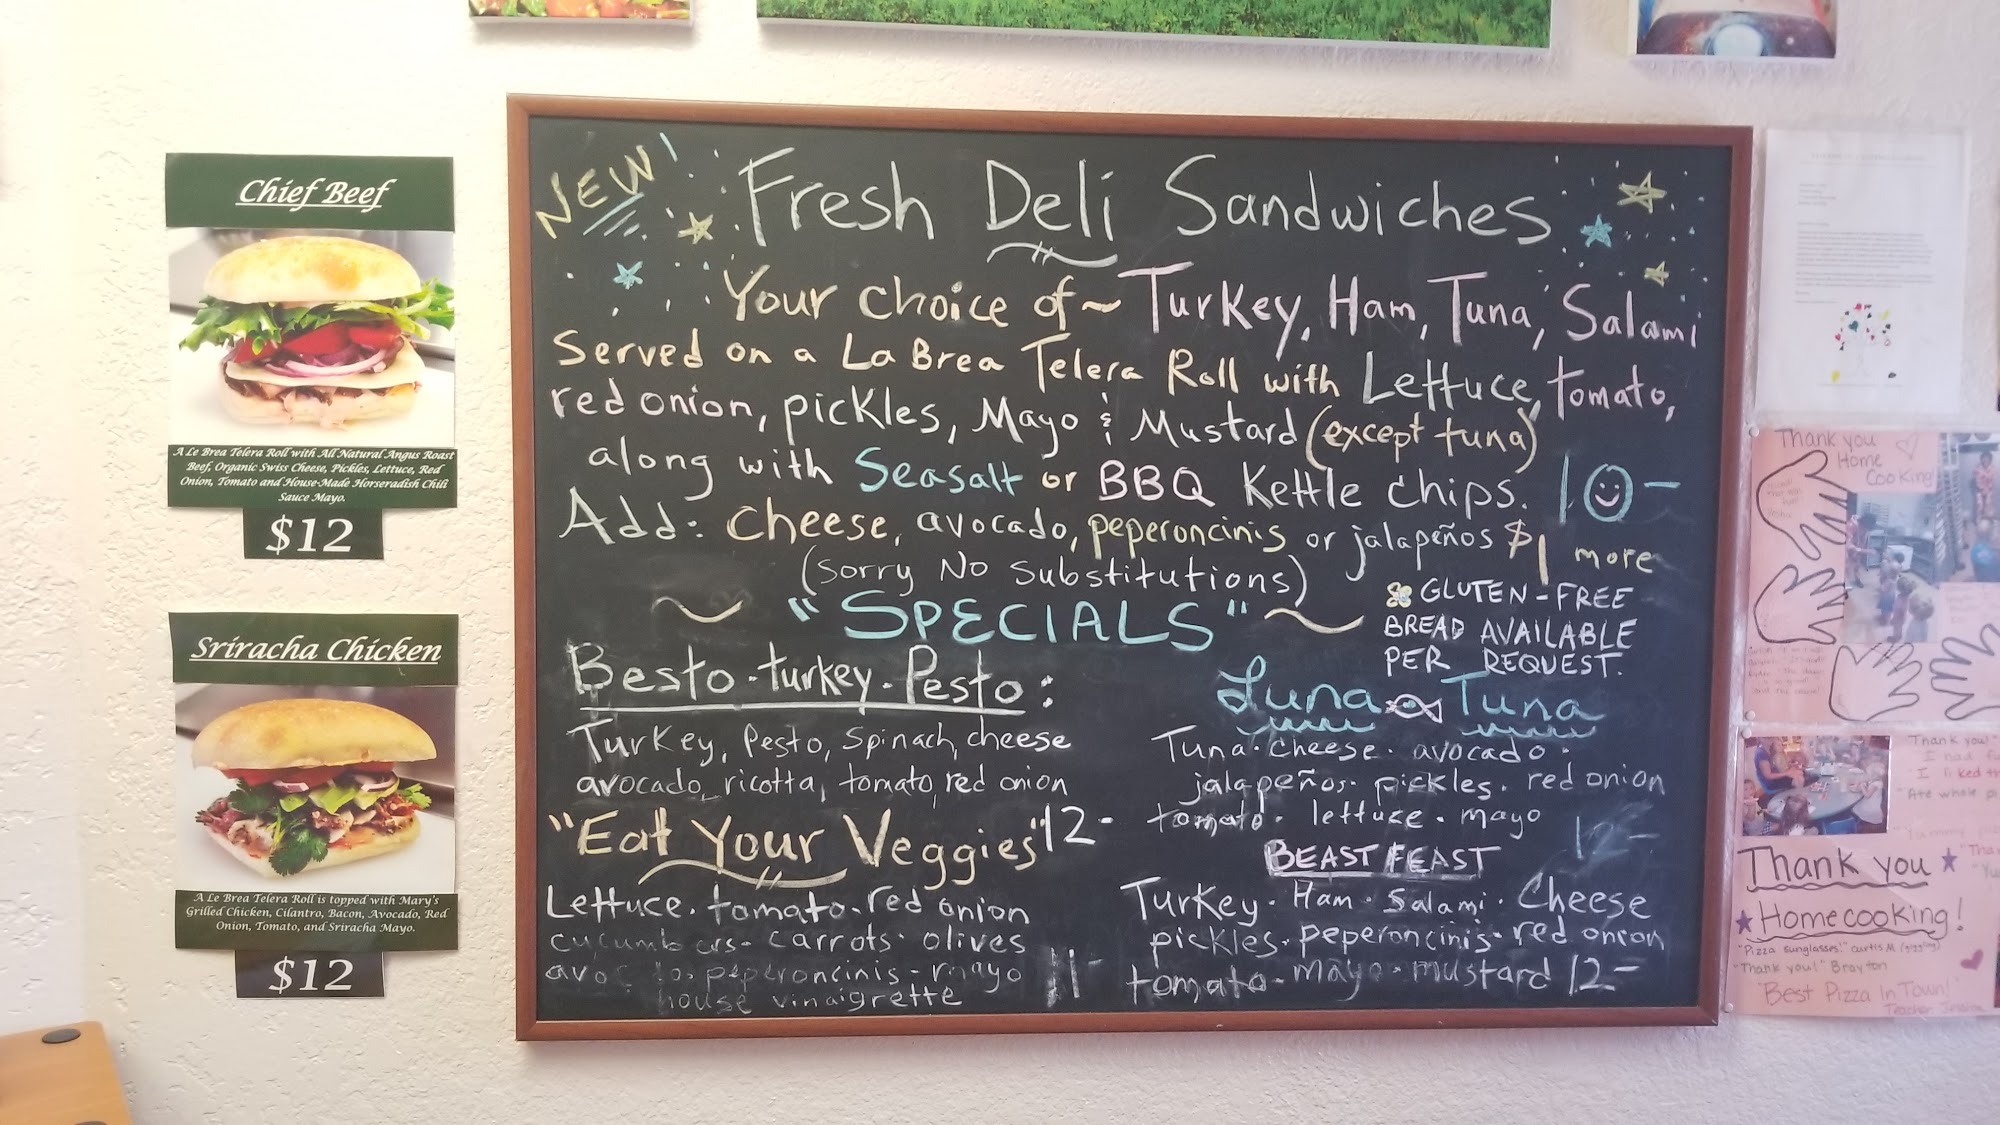 Chief Beef
A Le Brea Telera Roll with All Natural Angus Roast
Beef, Organic Swiss Cheese, Pickles, Lettuce, Red
Onion, Tomato and House-Made Horseradish Chili
Sauce Mayo.
$12
Sriracha Chicken
A Le Brea Telera Roll is topped with Mary's
Grilled Chicken, Cilantro, Bacon, Avocado, Red
Onion, Tomato, and Sriracha Mayo.
$12
NEW!
Fresh Deli Sandwiches
Your choice of ~ Turkey, Ham, Tuna, Salami
Served on a La Brea Telera Roll with Lettuce, tomato,
red onion, pickles, Mayo & Mustard (except tuna)
along with Seasalt or BBQ Kettle chips. 10-
Add: Cheese, avocado, peperoncinis or jalapeños $1 more
(sorry No substitutions)
~ "SPECIALS" ~
GLUTEN-FREE
BREAD AVAILABLE
PER REQUEST.
Besto·turkey·Pesto:
Turkey, Pesto, Spinach, cheese
avocado, ricotta, tomato, red onion
12-
"Eat Your Veggies"
Lettuce · tomato · red onion
cucumbers · carrots · olives
avocado · peperoncinis - mayo
house vinaigrette
11-
Luna Tuna
Tuna · cheese · avocado ·
jalapeños · pickles · red onion
tomato · lettuce · mayo
12-
BEAST FEAST
Turkey · Ham · Salami · Cheese
pickles · peperoncinis · red onion
tomato · mayo · mustard 12-
Thank you
Home
Cooking!
Thank you!"
I had
"I liked
"Ate whole
"Yummy
Thank you
Homecooking!
"Pizza sunglasses!" Curtis M (giggling)
"Thank you!" Brayton
"Best Pizza In Town!"
Teacher